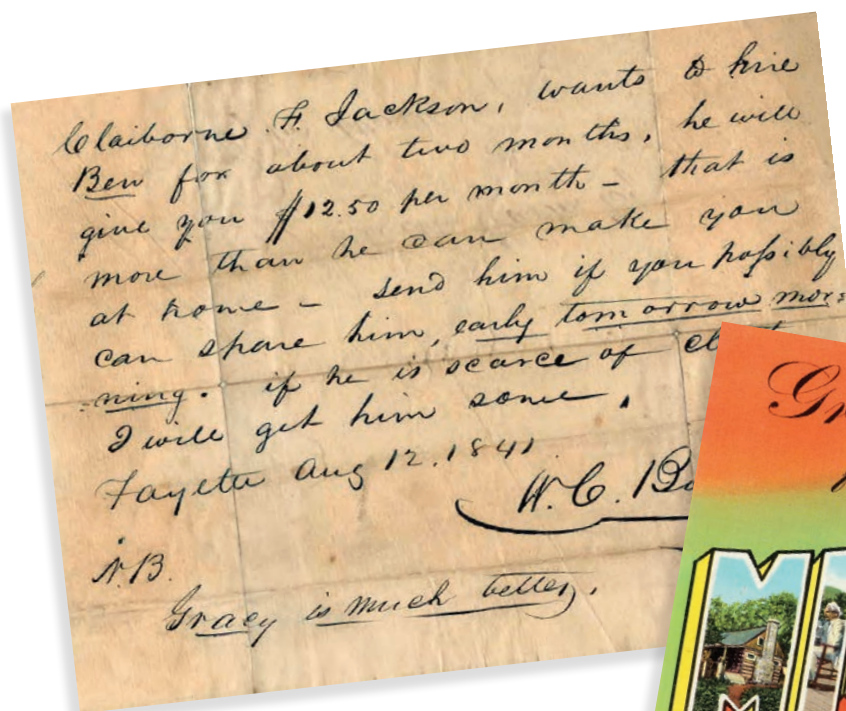 Claiborne F. Jackson, wants to hire
Ben for about two months, he will
give you $12.50 per month – that is
more than he can make you
at home – send him if you possibly
can spare him, early tomorrow mor=
=ning. if he is scarce of
I will get him some.
Fayette Aug 12. 1841
W. C.
N.B.
Gracy is much better.